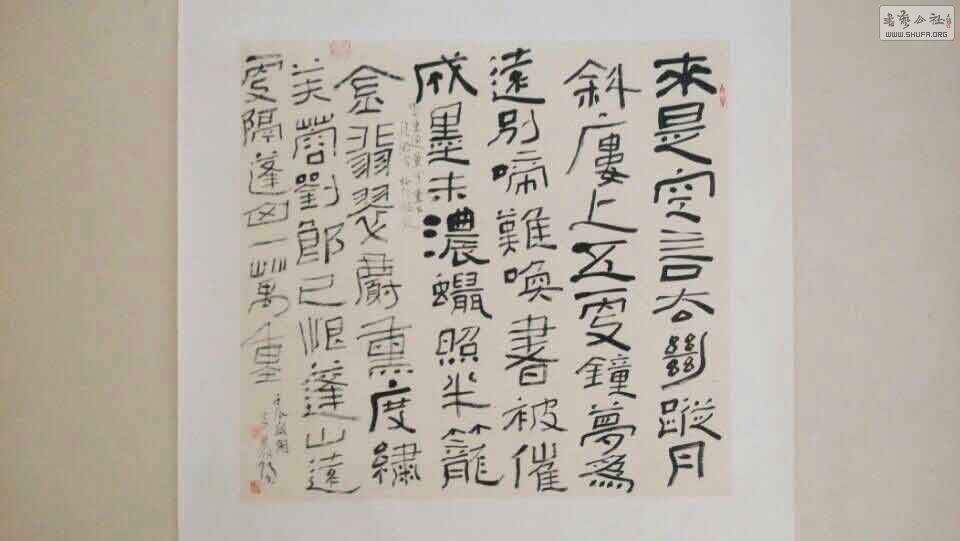 來是空言去絕蹤月
斜廔上五更鐘夢為
遠別啼難喚書被催
成墨未濃蠟照半籠
金翡翠麝熏度繡
芙蓉劉郎已恨蓬山遠
更隔蓬山一萬重
壬辰
书艺公社
WWW.SHUFA.ORG